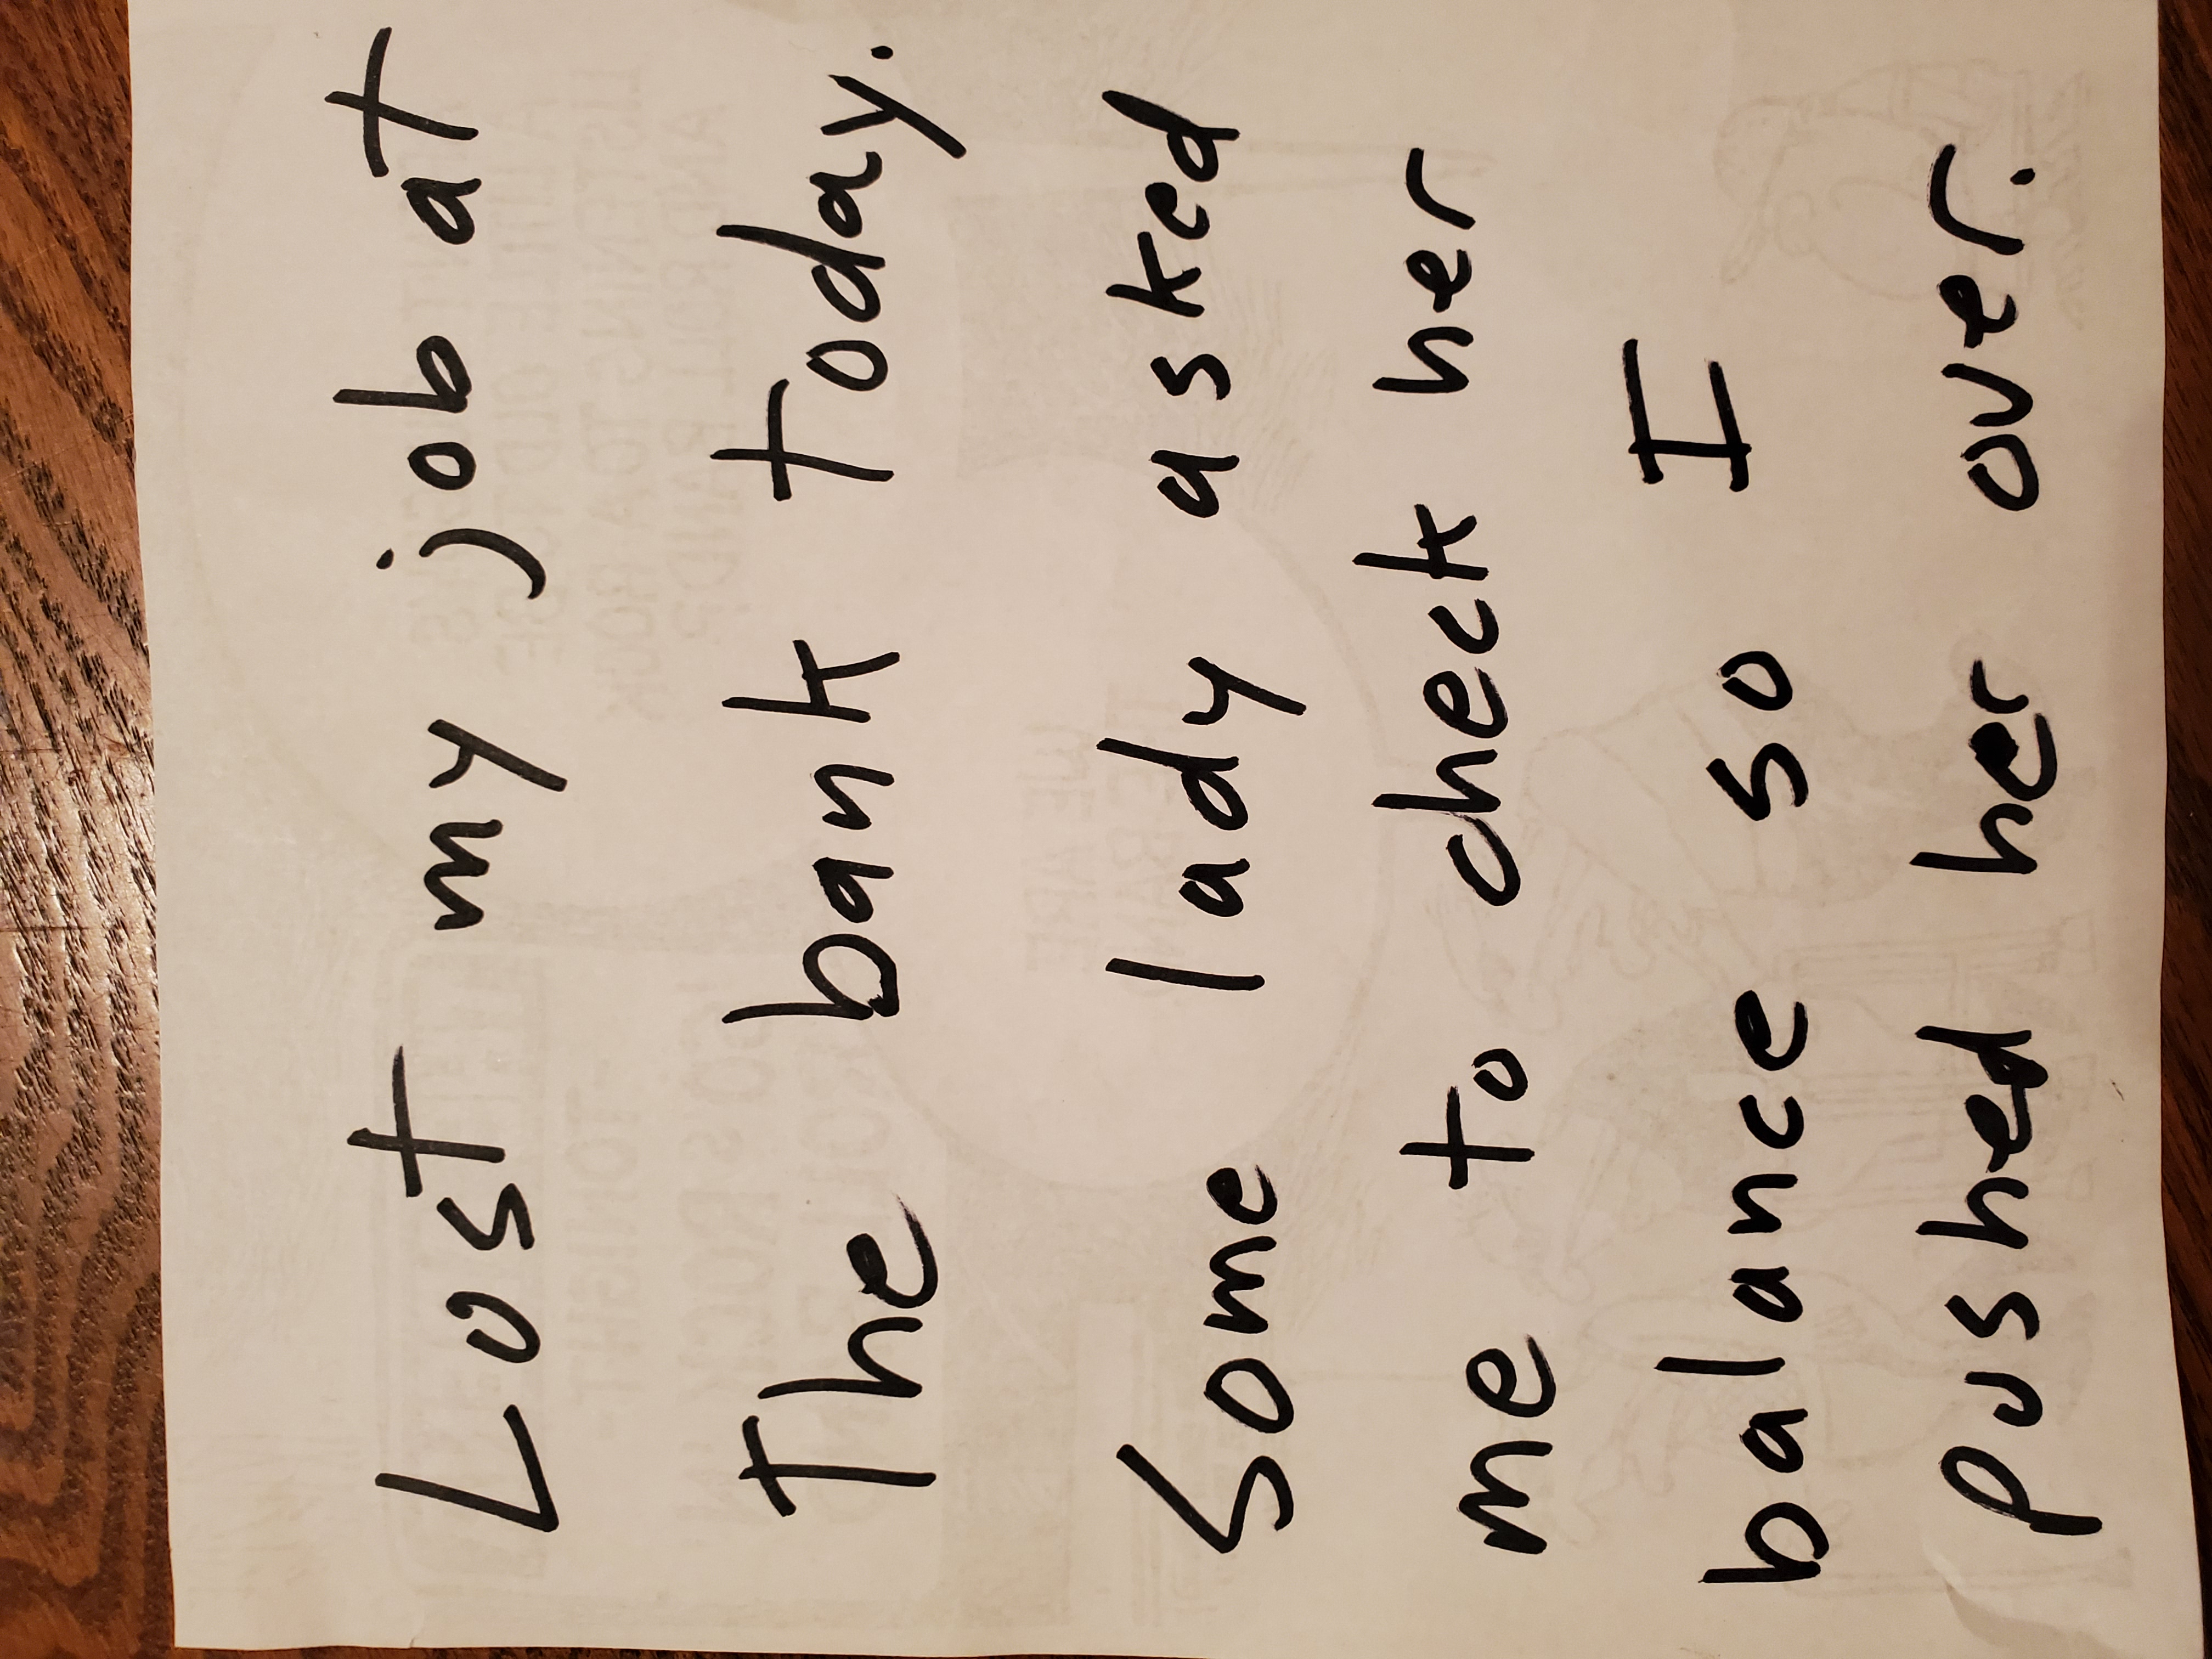 Lost my job at
the bank today.
Some lady asked
me to check her
balance so I
pushed her over.